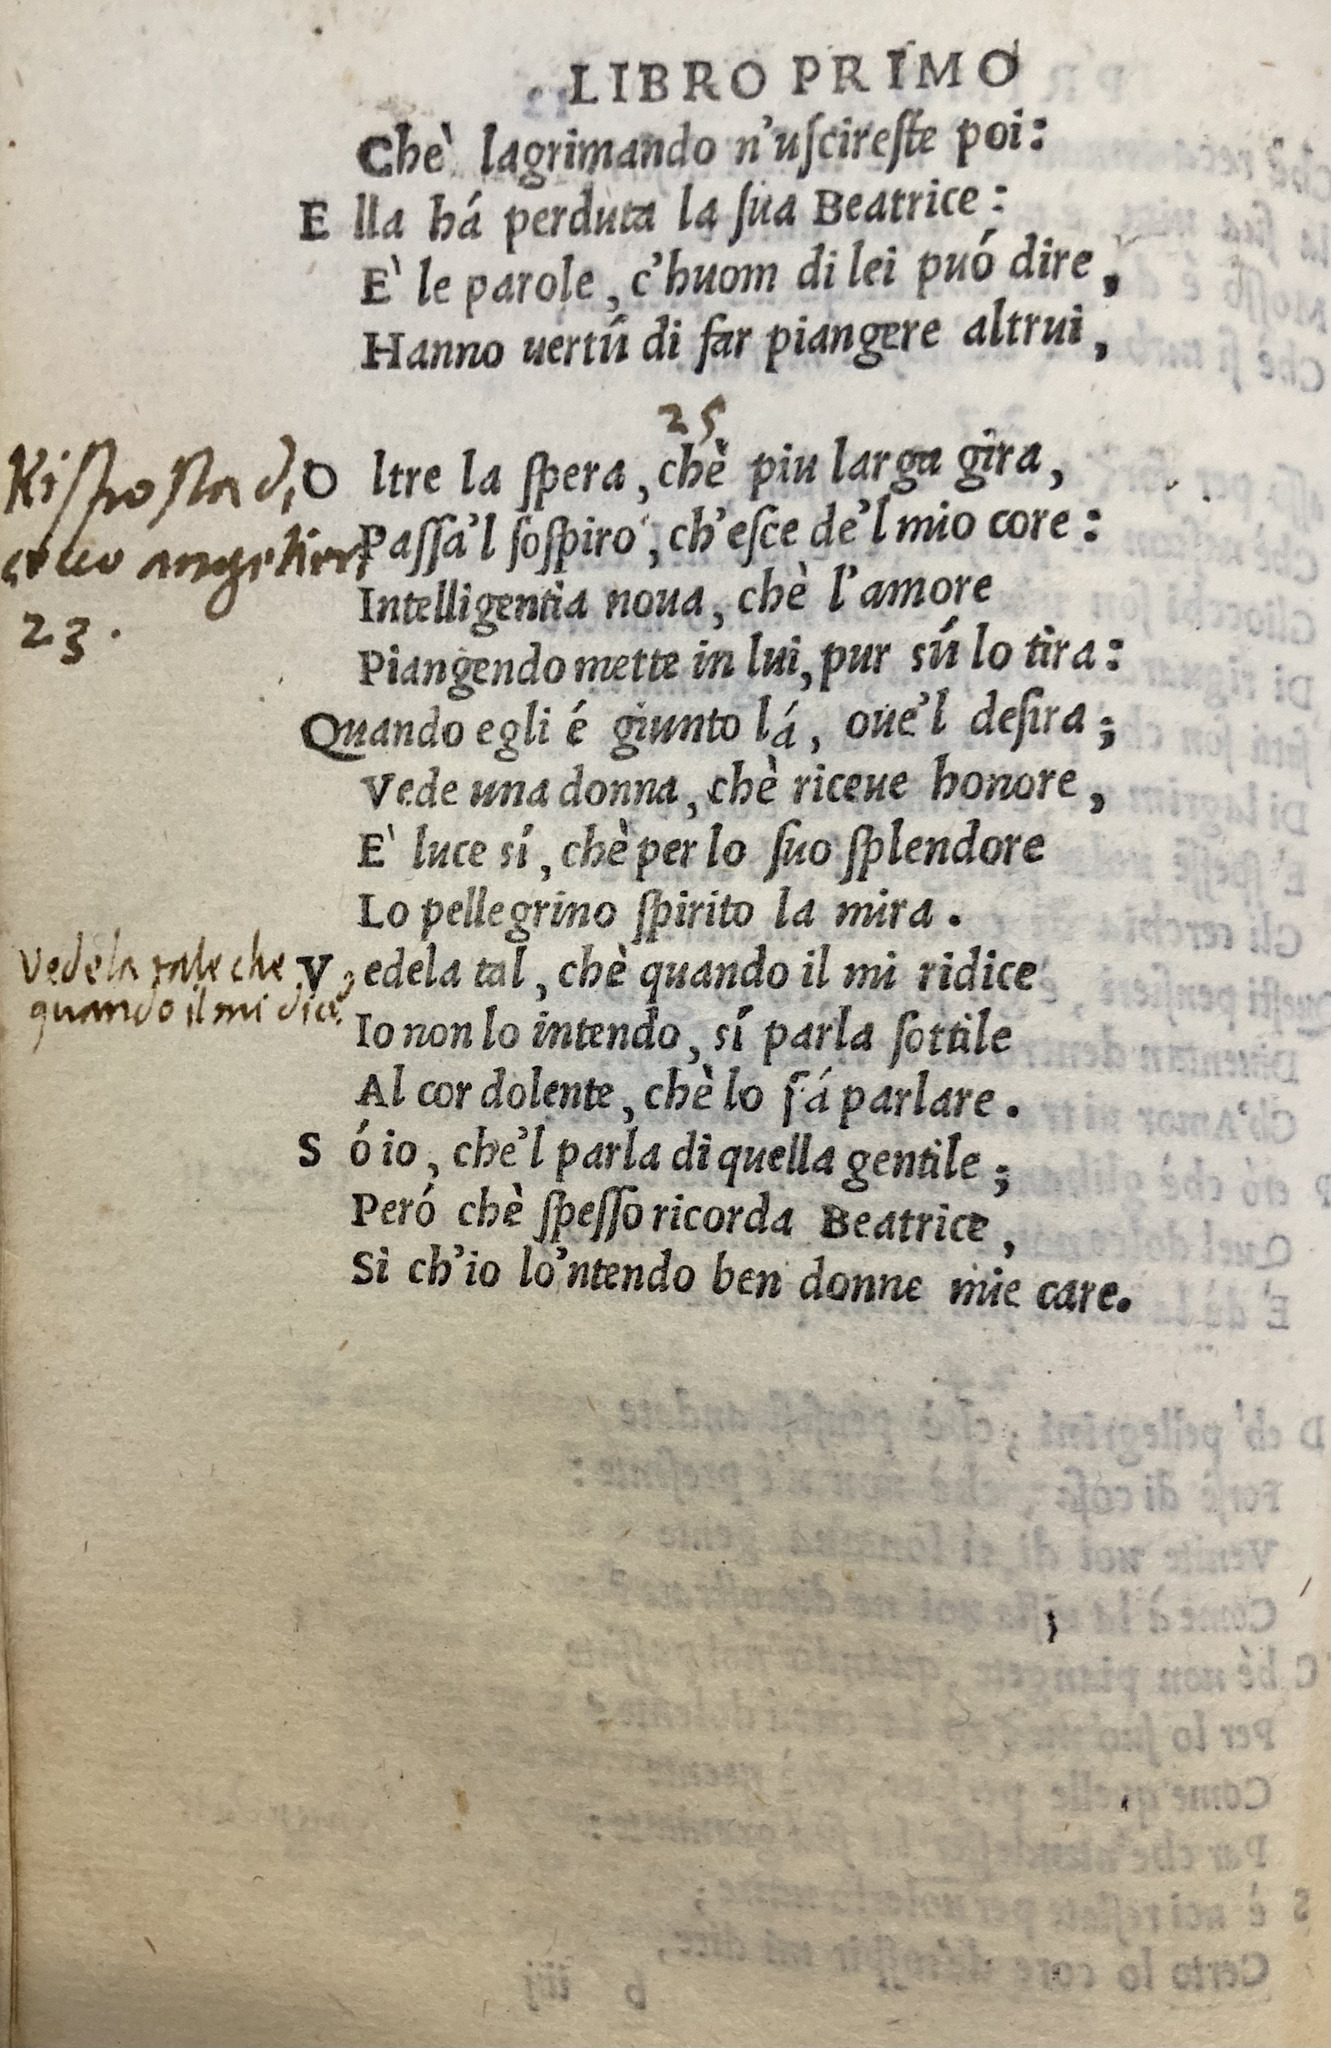 LIBRO PRIMO
Chè lagrimando n'uſcireſte poi:
E lla há perduta la ſua Beatrice:
E' le parole, c'huom di lei puó dire,
Hanno uertú di far piangere altrui,
25
Riſpoſta di
cecco angelieri
23.
O ltre la ſpera, chè piu larga gira,
Paſſa'l ſoſpiro, ch'eſce de'l mio core:
Intelligentia noua, chè l'amore
Piangendo mette in lui, pur sú lo tira:
Quando egli é giunto lá, oue'l deſira;
Vede una donna, chè riceue honore,
E' luce sí, chè per lo ſuo ſplendore
Lo pellegrino ſpirito la mira.
Vedela tale che
quando il mi dice
V edela tal, chè quando il mi ridice
Io non lo intendo, sí parla ſottile
Al cor dolente, chè lo fá parlare.
S ó io, che'l parla di quella gentile;
Peró chè ſpeſſo ricorda Beatrice,
Si ch'io lo'ntendo ben donne mie care.